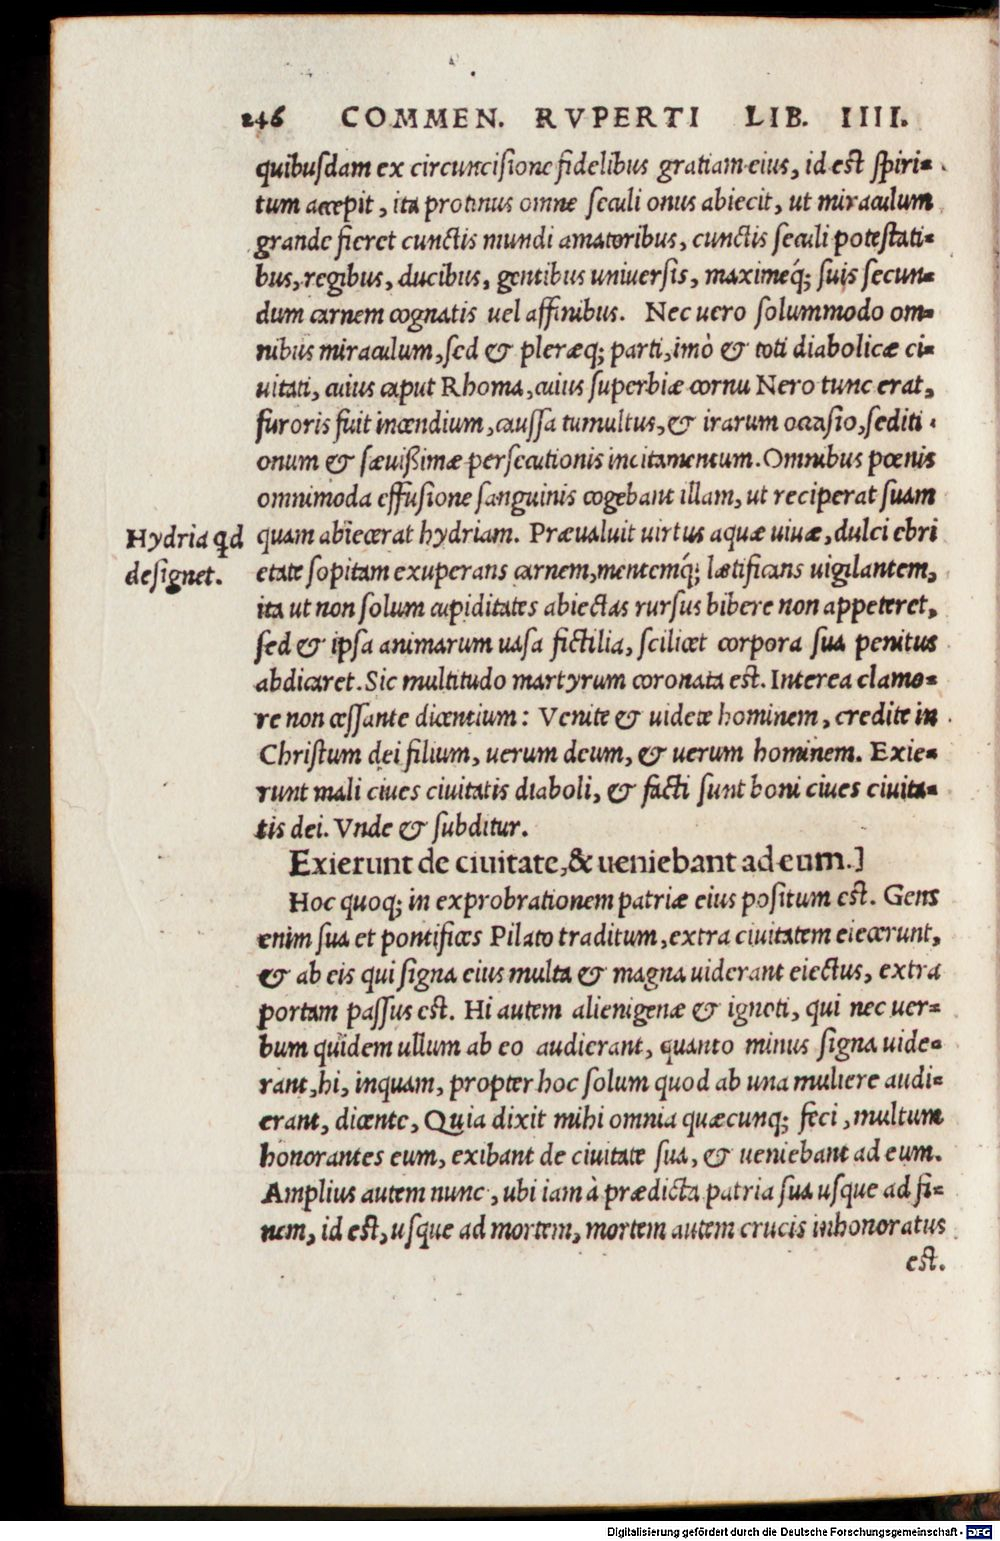 246 COMMEN. RVPERTI LIB. IIII.
quibuſdam ex circunciſione fidelibus gratiam eius, id est ſpiri=
tum accepit, ita protinus omne ſeculi onus abiecit, ut miraculum
grande fieret cunctis mundi amatoribus, cunctis ſeculi poteſtati=
bus, regibus, ducibus, gentibus uniuerſis, maximeq́; ſuis ſecun=
dum carnem cognatis uel affinibus. Nec uero ſolummodo om=
nibus miraculum, ſed & pleræq; parti, imò & toti diabolicæ ci=
uitati, cuius caput Rhoma, cuius ſuperbiæ cornu Nero tunc erat,
furoris fuit incendium, cauſſa tumultus, & irarum occaſio, ſediti
onum & ſæuißimæ perſecutionis incitamentum. Omnibus pœnis
omnimoda effuſione ſanguinis cogebant illam, ut reciperat ſuam
Hydria qd
deſignet.
quam abiecerat hydriam. Præualuit uirtus aquæ uiuæ, dulci ebri
etate ſopitam exuperans carnem, mentemq́; lætificans uigilantem,
ita ut non ſolum cupiditates abiectas rurſus bibere non appeteret,
ſed & ipſa animarum uaſa fictilia, ſcilicet corpora ſua penitus
abdicaret. Sic multitudo martyrum coronata est. Interea clamo=
re non ceſſante dicentium: Venite & uidete hominem, credite in
Chriſtum dei filium, uerum deum, & uerum hominem. Exie=
runt mali ciues ciuitatis diaboli, & facti ſunt boni ciues ciuita=
tis dei. Vnde & ſubditur.
Exierunt de ciuitate, & ueniebant ad eum.]
Hoc quoq; in exprobrationem patriæ eius poſitum est. Gens
enim ſua et pontifices Pilato traditum, extra ciuitatem eiecerunt,
& ab eis qui ſigna eius multa & magna uiderant eiectus, extra
portam paſſus est. Hi autem alienigenæ & ignoti, qui nec uer=
bum quidem ullum ab eo audierant, quanto minus ſigna uide=
rant, hi, inquam, propter hoc ſolum quod ab una muliere audi=
erant, dicente, Quia dixit mihi omnia quæcunq; feci, multum
honorantes eum, exibant de ciuitate ſua, & ueniebant ad eum.
Amplius autem nunc, ubi iam à prædicta patria ſua uſque ad fi=
nem, id est, uſque ad mortem, mortem autem crucis inhonoratus
est.
Digitalisierung gefördert durch die Deutsche Forschungsgemeinschaft - DFG